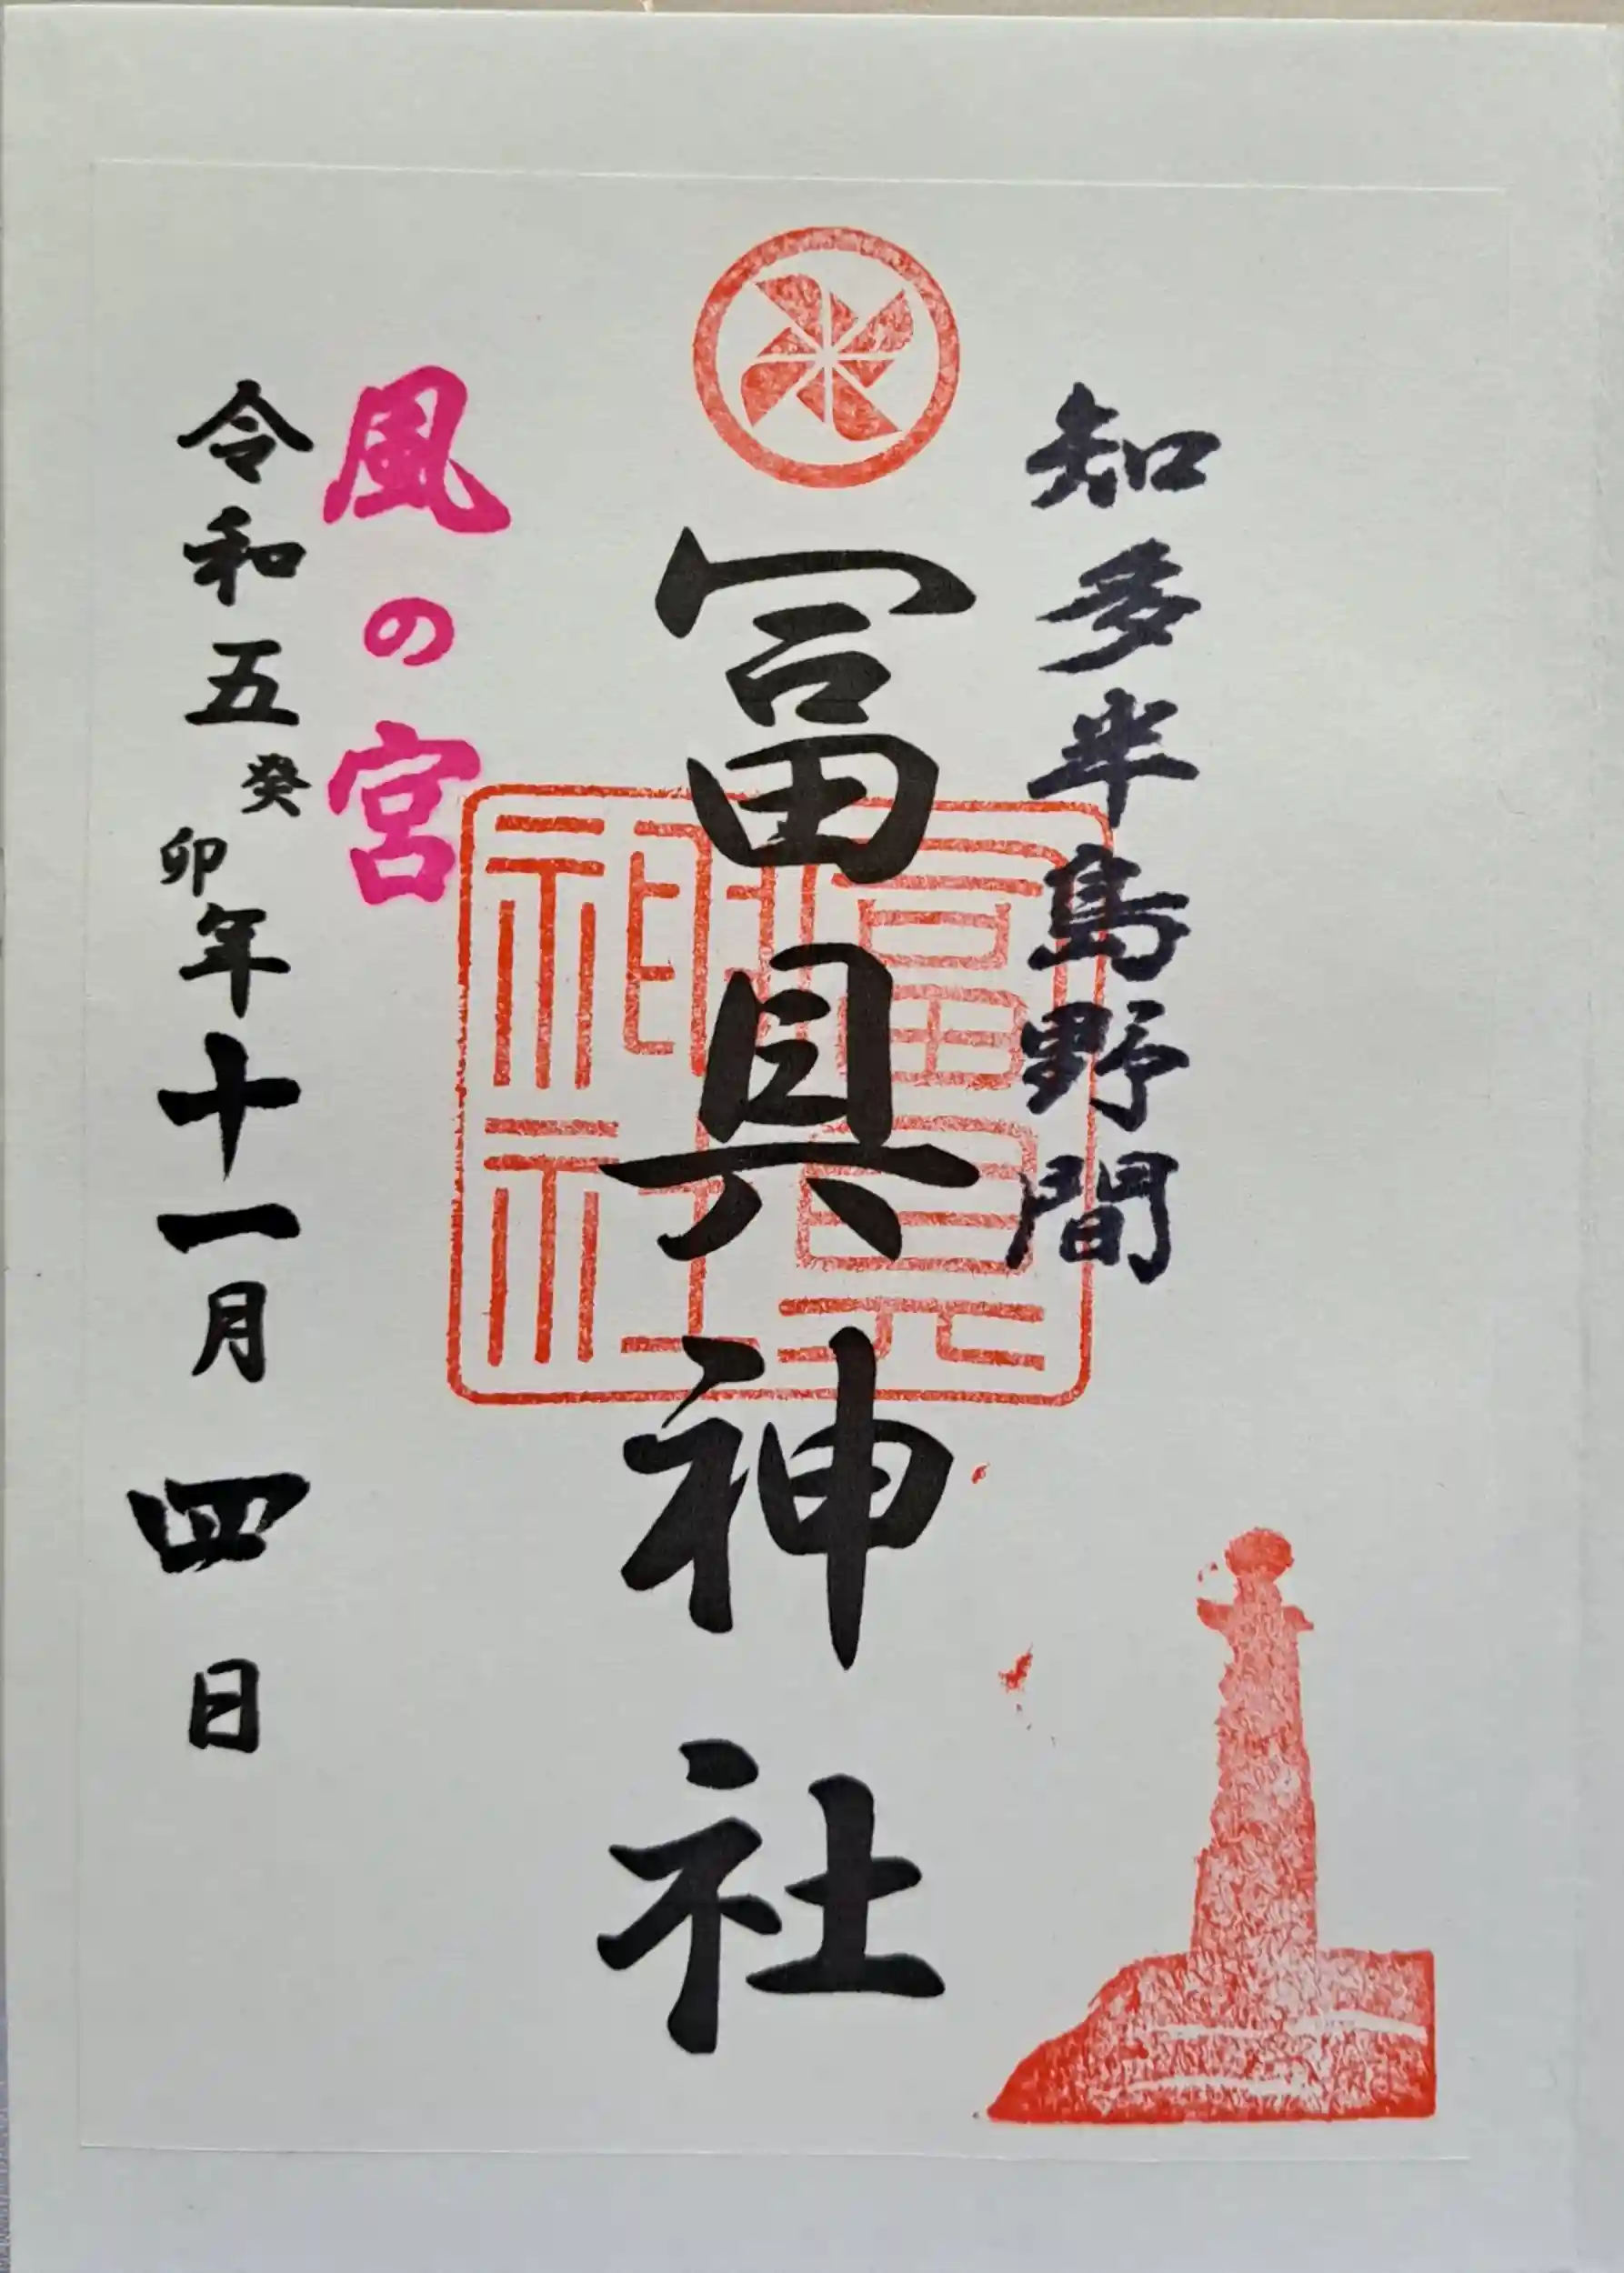 知多半島野間
冨具神社
富具
神社
風の宮
令和五癸卯年十一月四日